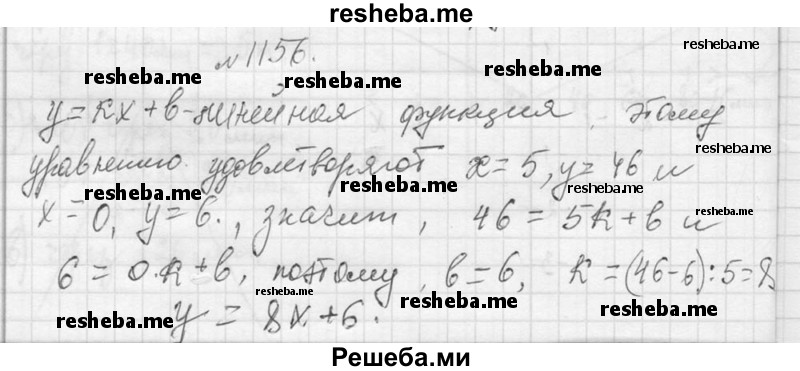 resheba.me
№1156.
resheba.me
resheba.me resheba.me
y=кx+в-линейная функция. Этому
уравнению удовлетворяют x=5, y=46 и
resheba.me
resheba.me resheba.me resheba.me
x=0, y=6., значит, 46=5к+в и
resheba.me
6=0.к+в, поэтому, в=6, к=(46-6):5=8
resheba.me resheba.me resheba.me resheba.me
y=8x+6.
Решеба.ми